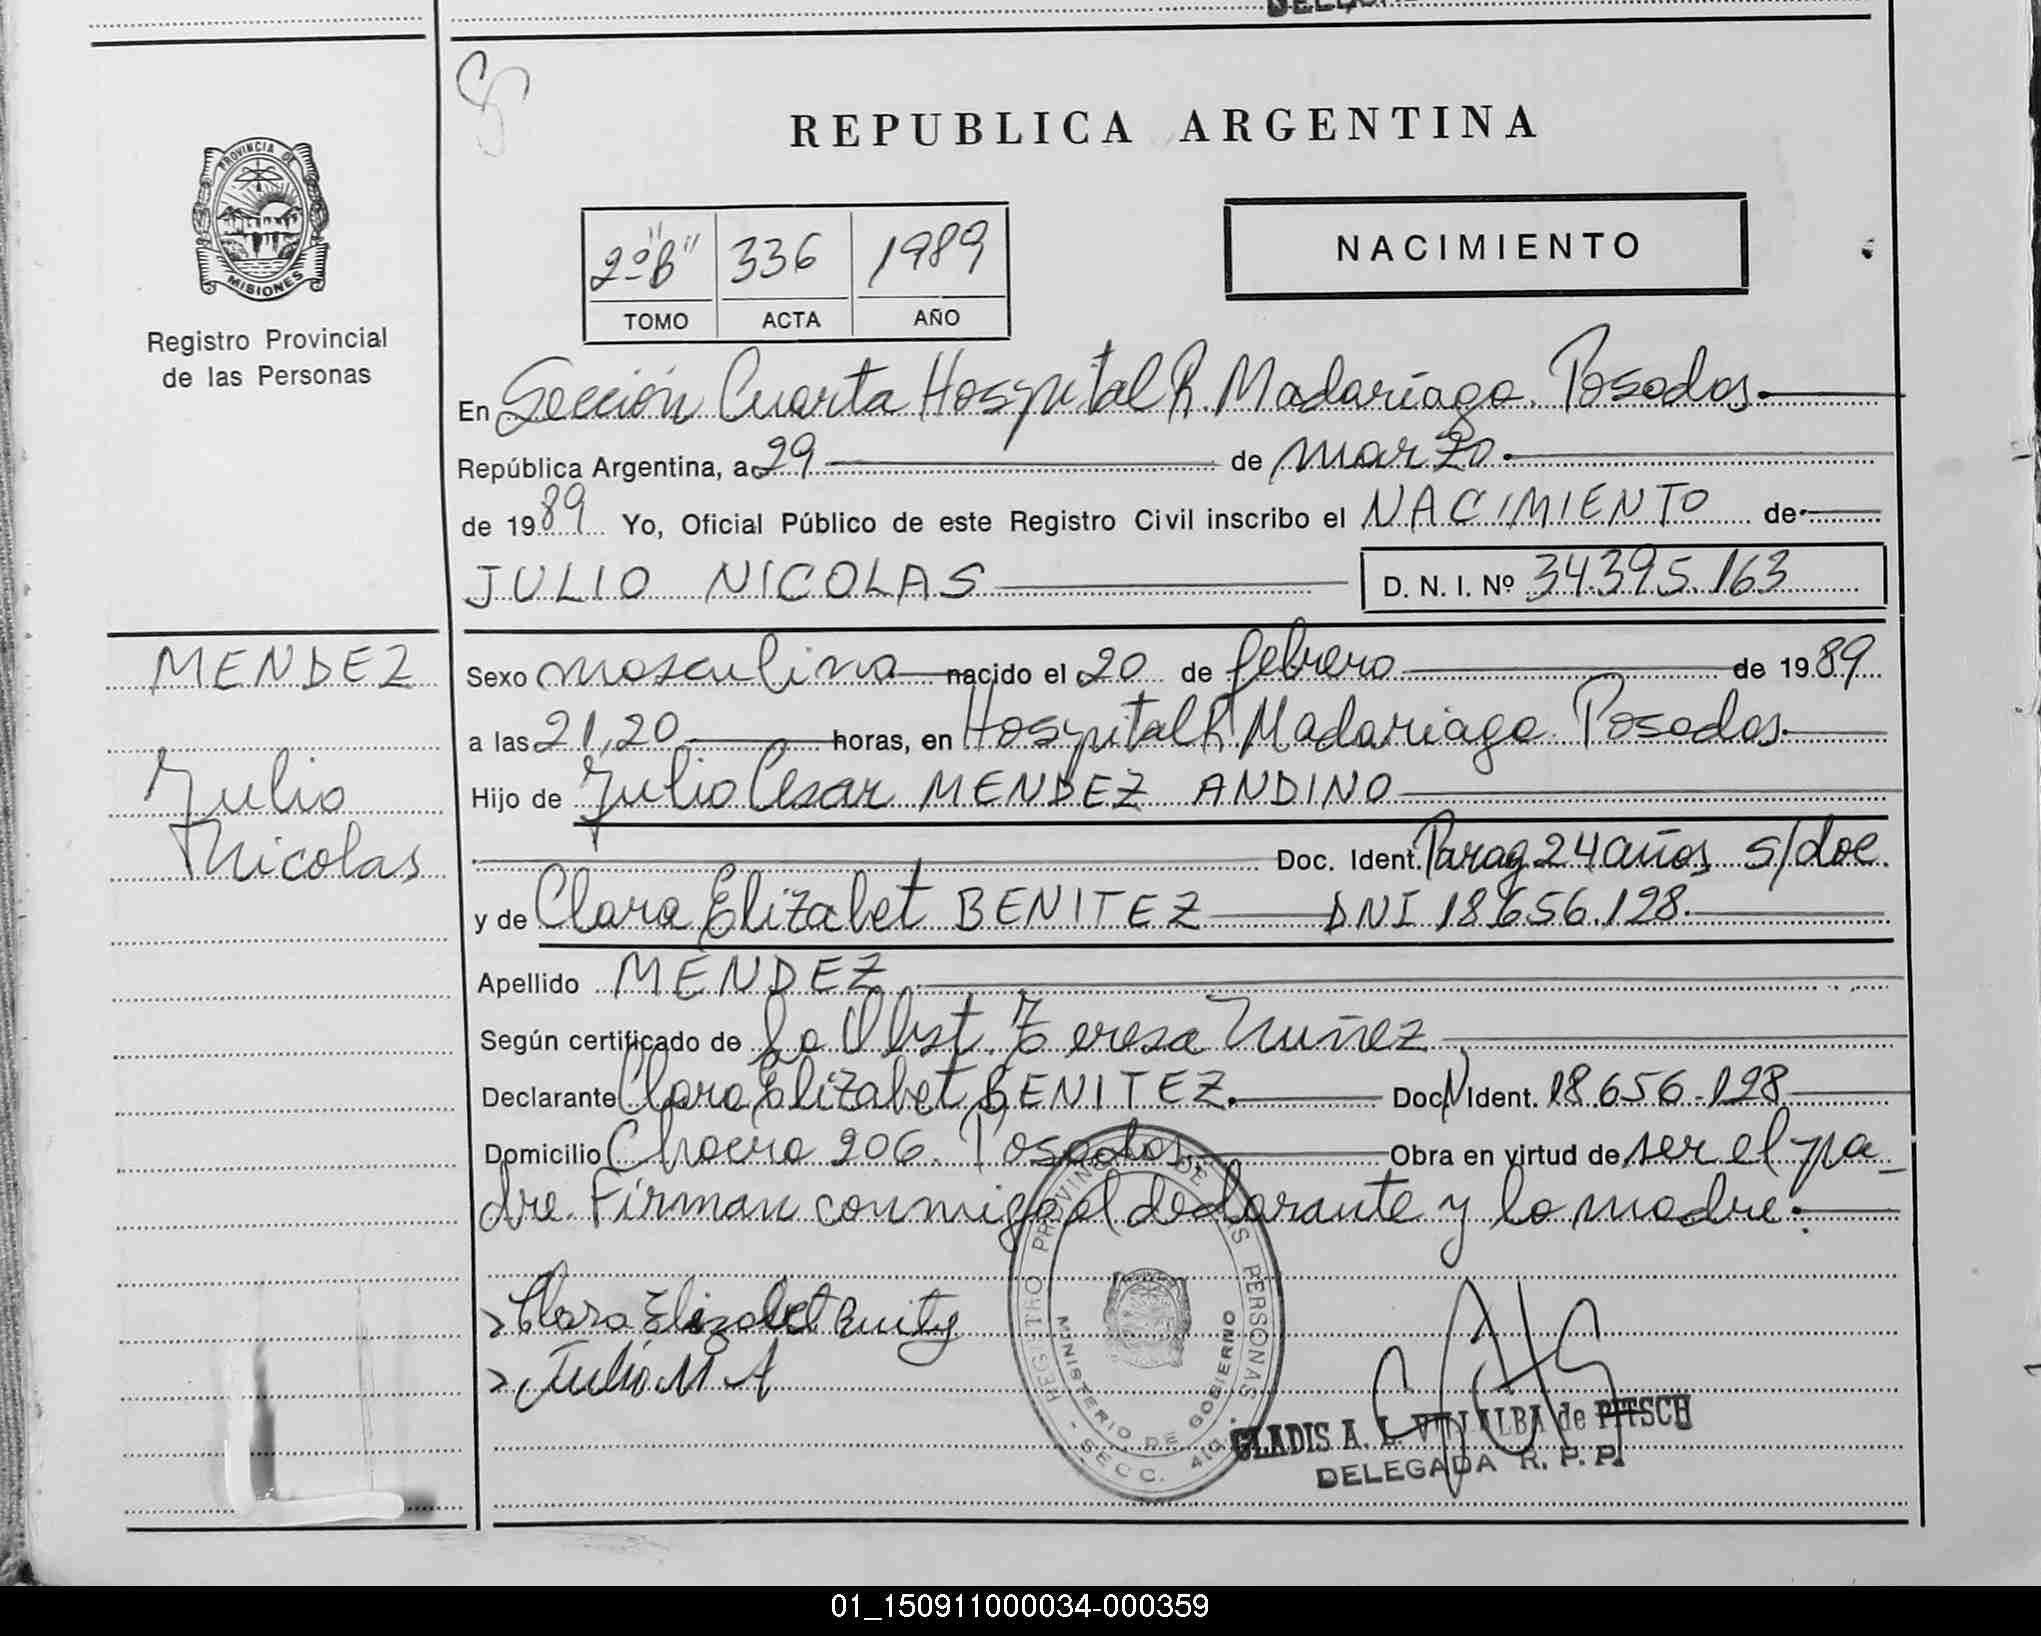 REPUBLICA ARGENTINA
PROVINCIA DE
MISIONES
Registro Provincial
de las Personas
2º "B" 336 1989
TOMO ACTA AÑO
NACIMIENTO
En Sección Cuarta Hospital R. Madariaga. Posadas.
República Argentina, a 29 de marzo.
de 1989 Yo, Oficial Público de este Registro Civil inscribo el NACIMIENTO de
JULIO NICOLAS D. N. I. Nº 34.395.163
MENDEZ
Julio
Nicolas
Sexo masculino nacido el 20 de febrero de 1989
a las 21,20 horas, en Hospital R. Madariaga. Posadas.
Hijo de Julio Cesar MENDEZ ANDINO
Doc. Ident. Parag 24 años s/doc.
y de Clara Elizabet BENITEZ DNI 18.656.128.
Apellido MENDEZ
Según certificado de la Obst. Teresa Nuñez
Declarante Clara Elizabet BENITEZ. Doc. N Ident. 18.656.128
Domicilio Chacra 206. Posadas. Obra en virtud de ser el pa-
dre. Firman conmigo el declarante y la madre.
Clara Elizabet
Julio M A
REGISTRO PROVINCIAL DE LAS PERSONAS
MINISTERIO DE GOBIERNO
- SECC. 4ta. -
GLADIS A. L. VILLALBA de PITSCH
DELEGADA R. P. P.
01_150911000034-000359